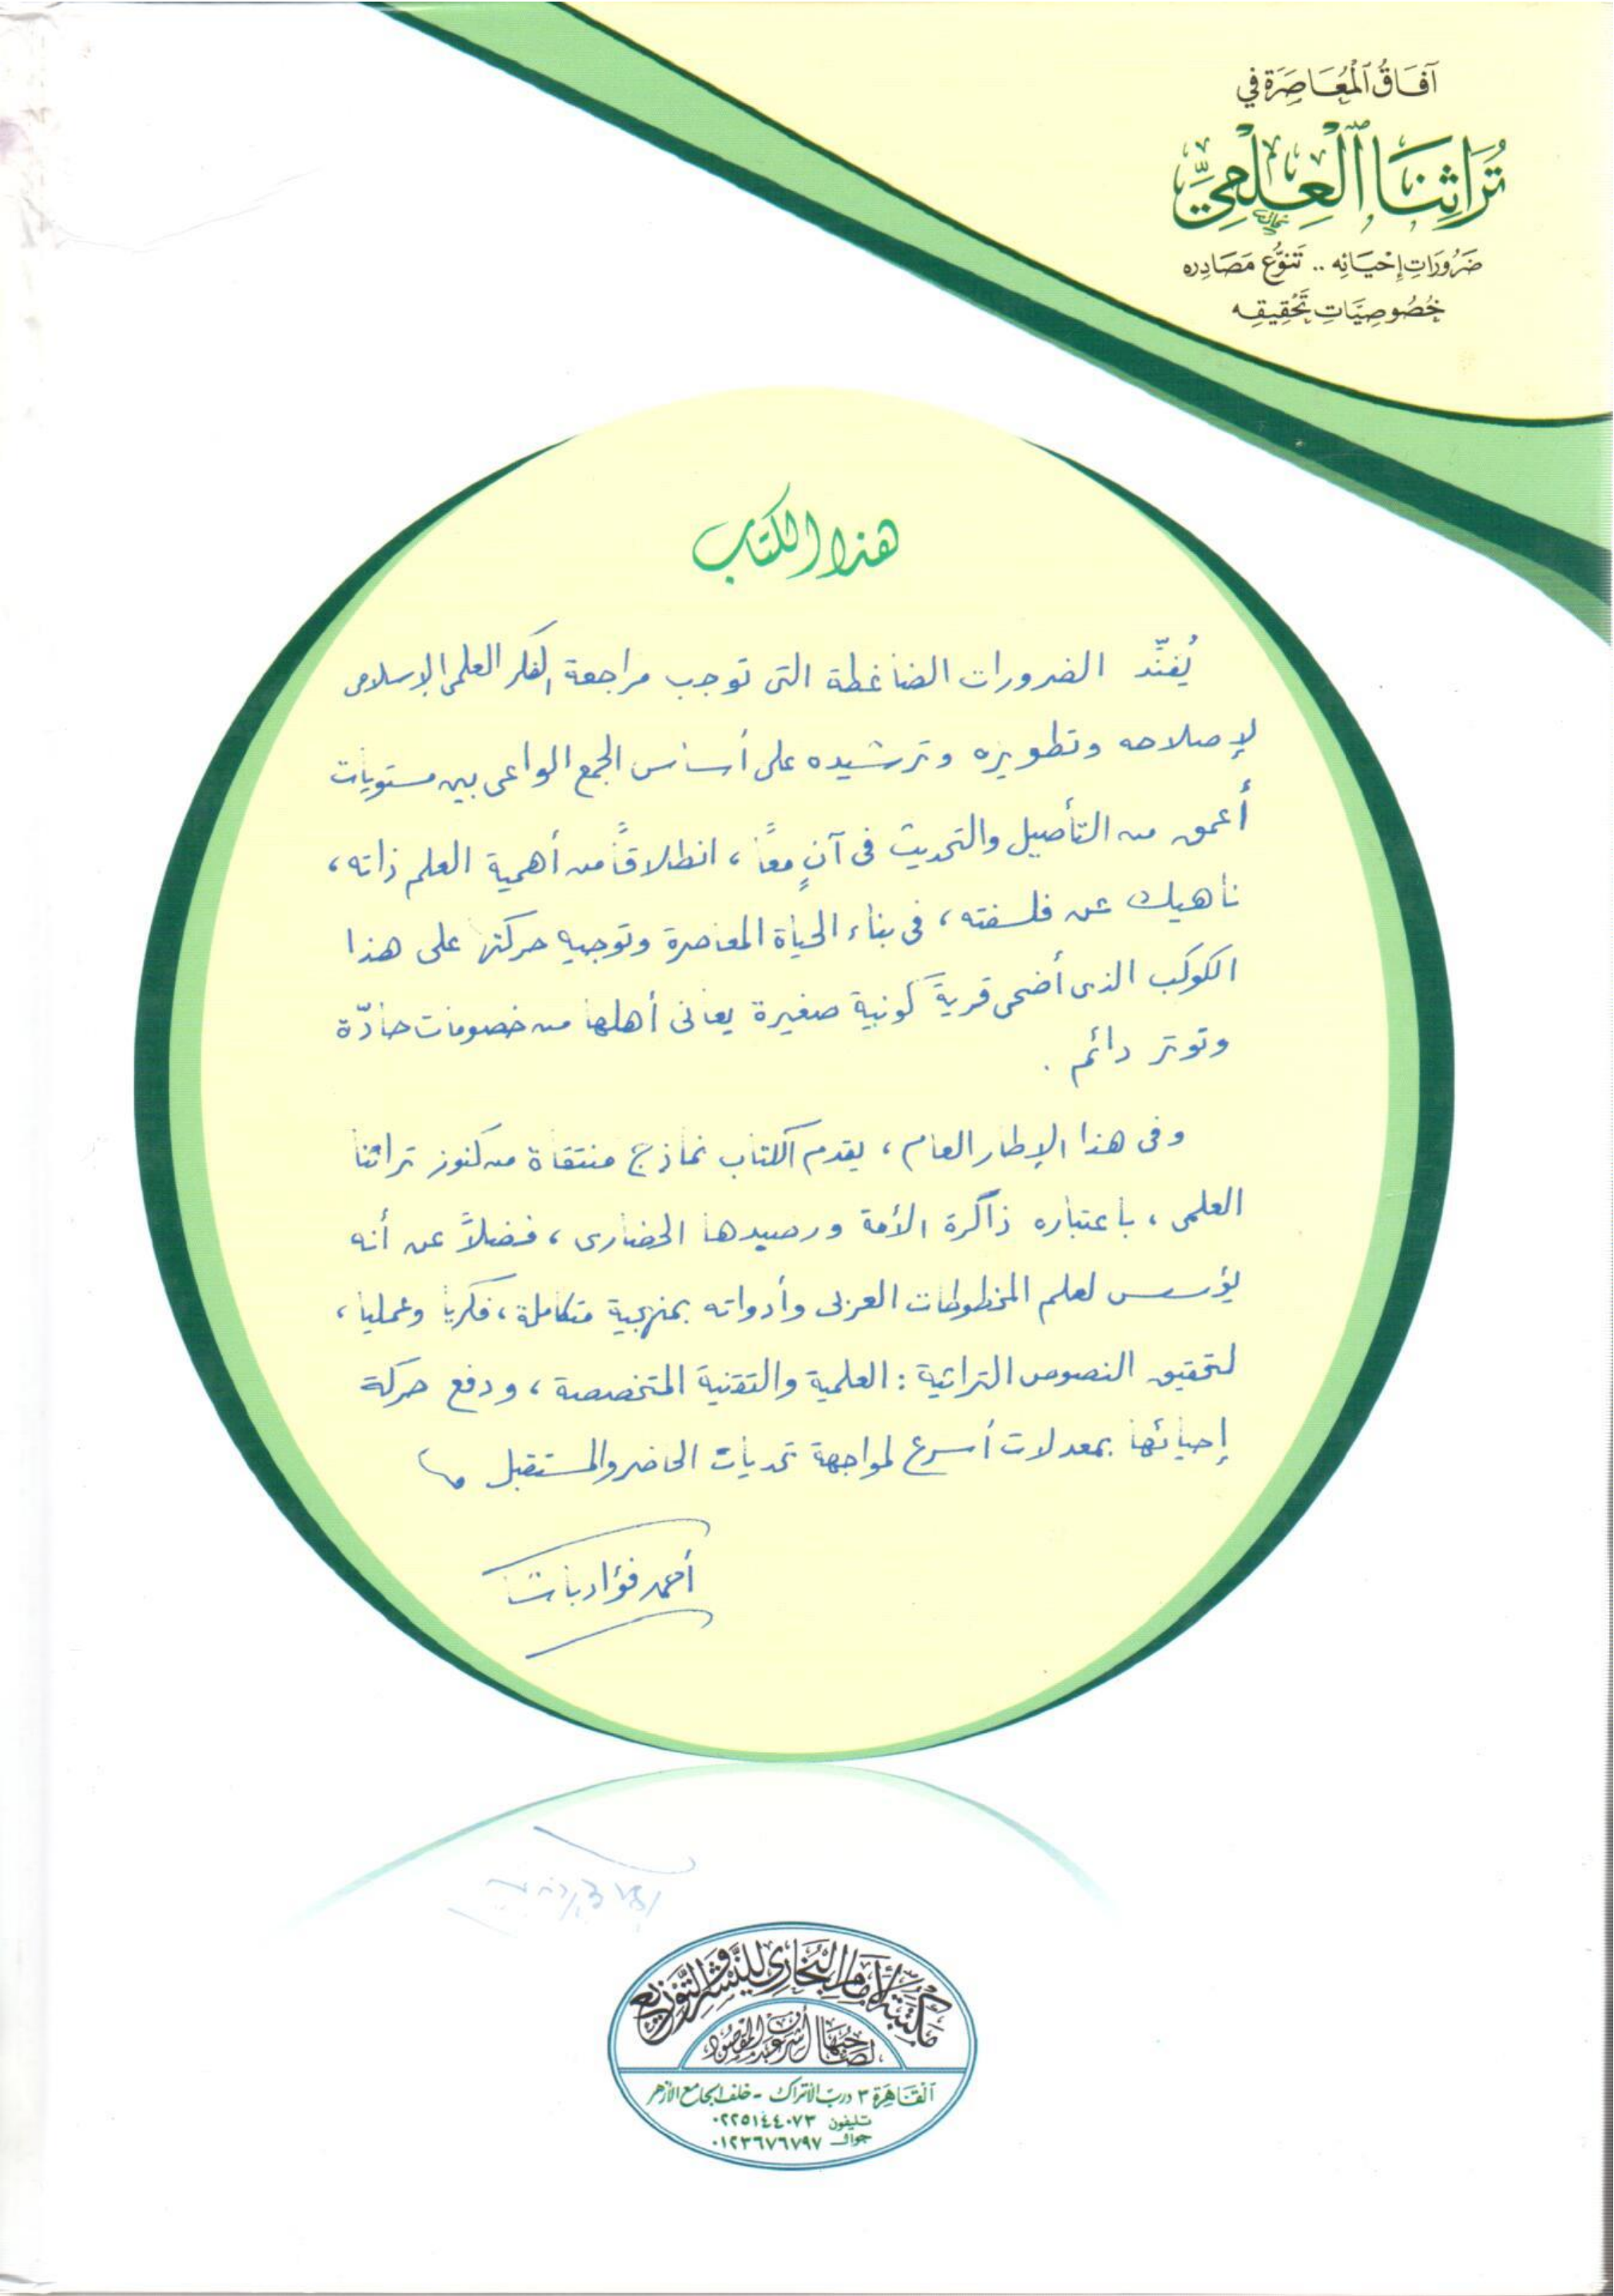 آفَاقُ ٱلْمُعَاصَرَة في
تُرَاثِنَا ٱلْعِلْمِيِّ
ضَرُورَاتِ إِحْيَائِه .. تَنَوُّع مَصَادِره
خُصُوصِيَّاتِ تَحْقِيقِه
هذا الكتاب
يُفنِّد الضرورات الضاغطة التى توجب مراجعة الفكر العلمى الإسلامى
لإصلاحه وتطويره وترشيده على أساس الجمع الواعى بين مستويات
أعمق من التأصيل والتحديث فى آنٍ معاً ، انطلاقاً من أهمية العلم ذاته ،
ناهيك عن فلسفته ، فى بناء الحياة المعاصرة وتوجيه حركتها على هذا
الكوكب الذى أضحى قريةً كونية صغيرة يعانى أهلها من خصومات حادّة
وتوتر دائم .
وفى هذا الإطار العام ، يقدم الكتاب نماذج منتقاة من كنوز تراثنا
العلمى ، باعتباره ذاكرة الأمة ورصيدها الحضارى ، فضلاً عن أنه
يؤسس لعلم المخطوطات العربى وأدواته بمنهجية متكاملة ، فكريا وعمليا ،
لتحقيق النصوص التراثية : العلمية والتقنية المتخصصة ، ودفع حركة
إحيائها بمعدلات أسرع لمواجهة تحديات الحاضر والمستقبل
أحمد فؤاد باشا
مَكتبَة الإمَام البُخَاري للنَّشْر وَالتَّوْزيع
لصَاحبهَا أشرف عبد المقصود
ٱلْقَاهِرَة ٣ درب الأتراك - خلف الجامع الأزهر
تليفون ٠٢٢٥١٤٤٠٧٣
جوال ٠١٢٣٦٧٦٧٩٧